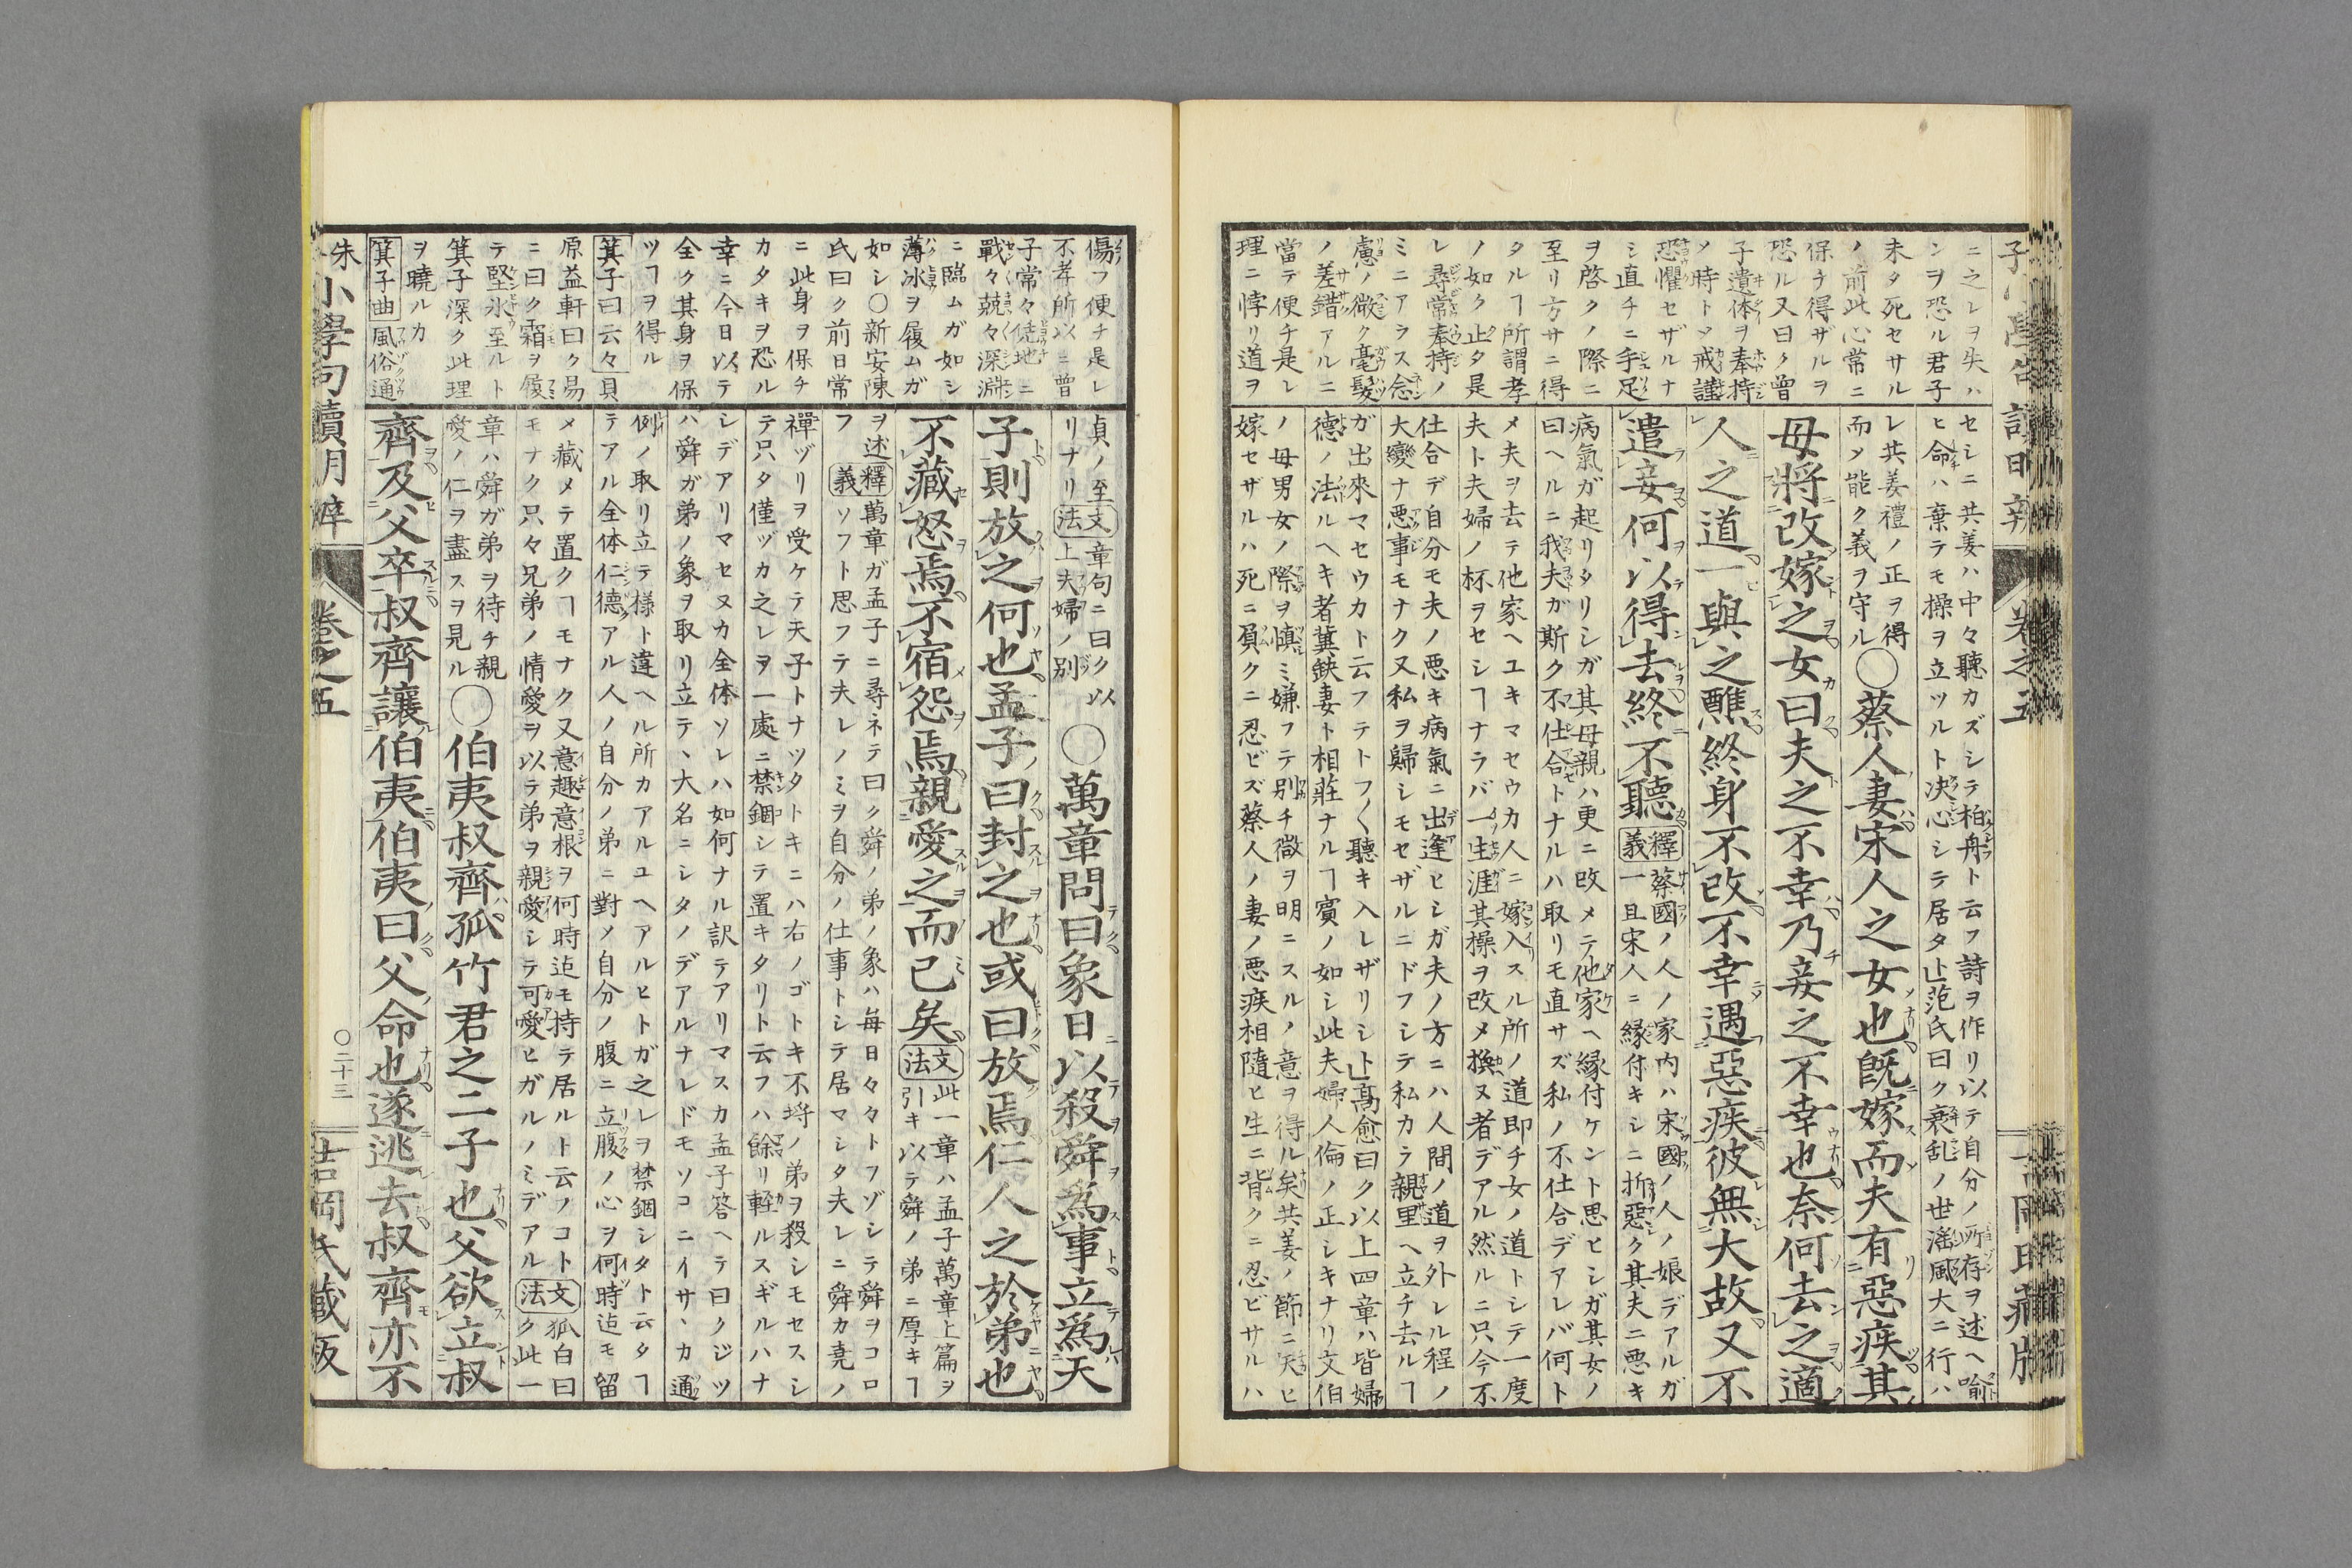 ニ之レヲ失ハ
ンヲ恐ル君子
未タ死セサル
ノ前此心常ニ
保チ得ザルヲ
恐ル又曰ク曾
子遺体ヲ奉持
ノ時トソ戒謹
恐懼セザルナ
シ直チニ手足
ヲ啓クノ際ニ
至リ方サニ得
タルヿ所謂孝
ノ如ク止タ是
レ尋常奉持ノ
ミニアラス念
慮ノ微ク毫髮
ノ差錯アルニ
當テ便チ是レ
理ニ悖リ道ヲ
セシニ共姜ハ中々聽カズシラ柏舟ト云フ詩ヲ作リ以テ自分ノ所存ヲ述ヘ喻
ヒ命ハ棄テモ操ヲ立ツルト决心シテ居タト」范氏曰ク衰乱ノ世滛風大ニ行ハ
レ共姜禮ノ正ヲ得
而ソ能ク義ヲ守ル
〇蔡人妻宋人之女也既嫁而夫有惡疾其
母將改嫁之女曰夫之不幸乃妾之不幸也奈何去之適
人之道一與之醮終身不改不幸遇惡疾彼無大故又不
遣妾何以得去終不聽
釋義
蔡國ノ人ノ家内ハ宋國ノ人ノ娘デアルガ
一且宋人ニ縁付キシニ折惡ク其夫ニ悪キ
病氣ガ起リタリシガ其母親ハ更ニ改メテ他家ヘ縁付ケント思ヒシガ其女ノ
曰ヘルニ我夫ガ斯ク不仕合トナルハ取リモ直サズ私ノ不仕合デアレバ何ト
メ夫ヲ去テ他家ヘユキマセウカ人ニ嫁入スル所ノ道即チ女ノ道トシテ一度
夫ト夫婦ノ杯ヲセシヿナラバ一生涯其操ヲ改メ換ヌ者デアル然ルニ只今不
仕合デ自分モ夫ノ悪キ病氣ニ出逢ヒシガ夫ノ方ニハ人間ノ道ヲ外レル程ノ
大變ナ悪事モナク又私ヲ歸シモセザルニドフシラ私カラ親里ヘ立チ去ルヿ
ガ出來マセウカト云フテトフ〱聽キ入レザリシト」髙愈曰ク以上四章ハ皆婦
德ノ法ルヘキ者冀缺妻ト相莊ナルヿ賓ノ如シ此夫婦人倫ノ正シキナリ文伯
ノ母男女ノ際ヲ愼ミ嫌フテ別チ微ヲ明ニスルノ意ヲ得ル矣共姜ノ節ニ矢ヒ
嫁セザルハ死ニ負クニ忍ビズ蔡人ノ妻ノ悪疾相隨ヒ生ニ背クニ忍ビサルハ
傷フ便チ是レ
不孝所以ニ曾
子常々徔地ニ
戰々兢々深淵
ニ臨ムガ如シ
薄冰ヲ履ムガ
如シ〇新安陳
氏曰ク前日常
ニ此身ヲ保チ
カタキヲ恐ル
幸ニ今日以テ
全ク其身ヲ保
ツヿヲ得ル
箕子曰云々貝
原益軒曰ク易
ニ曰ク霜ヲ履
テ堅氷至ルト
箕子深ク此理
ヲ曉ルカ
箕子曲風俗通
貞ノ至
リナリ
文法
章句ニ曰ク以
上夫婦ノ別
〇萬章問曰象日以殺舜爲事立爲天
子則放之何也孟子曰封之也或曰放焉仁人之於弟也
不藏怒焉不宿怨焉親愛之而已矣
文法
此一章ハ孟子萬章上篇ヲ
引キ以テ舜ノ弟ニ厚キヿ
ヲ述
フ
釋義
萬章ガ孟子ニ尋ネテ曰ク舜ノ弟ノ象ハ毎日々々トフゾシテ舜ヲコロ
ソフト思フテ夫レノミヲ自分ノ仕事トシラ居マシタ夫レニ舜カ堯ノ
禪ヅリヲ受ケテ天子トナツタトキニハ右ノゴトキ不埒ノ弟ヲ殺シモセスシ
テ只タ僅ヅカ之レヲ一處ニ禁錮シテ置キタリト云フハ餘リ輕ルスギルハナ
シデアリマセヌカ全体ソレハ如何ナル訳テアリマスカ孟子答ヘテ曰クジツ
ハ舜ガ弟ノ象ヲ取リ立テ、大名ニシタノデアルナレドモソコニイサ、カ通
例ノ取リ立テ様ト違ヘル所カアルユヘアルヒトガ之レヲ禁錮シタト云タヿ
テアル全体仁德アル人ノ自分ノ弟ニ對メ自分ノ腹ニ立腹ノ心ヲ何時迠モ留
メ藏メテ置クヿモナク又意趣意根ヲ何時迠モ持テ居ルト云フコト
モナク只々兄弟ノ情愛ヲ以テ弟ヲ親愛シテ可愛ヒガルノミデアル
文法
狐白曰
ク此一
章ハ舜ガ弟ヲ待チ親
愛ノ仁ヲ盡スヲ見ル
〇伯夷叔齊孤竹君之二子也父欲立叔
齊及父卒叔齊讓伯夷伯夷曰父命也遂逃去叔齊亦不
小學句讀
卷之五
〇二十三
岡氏藏版